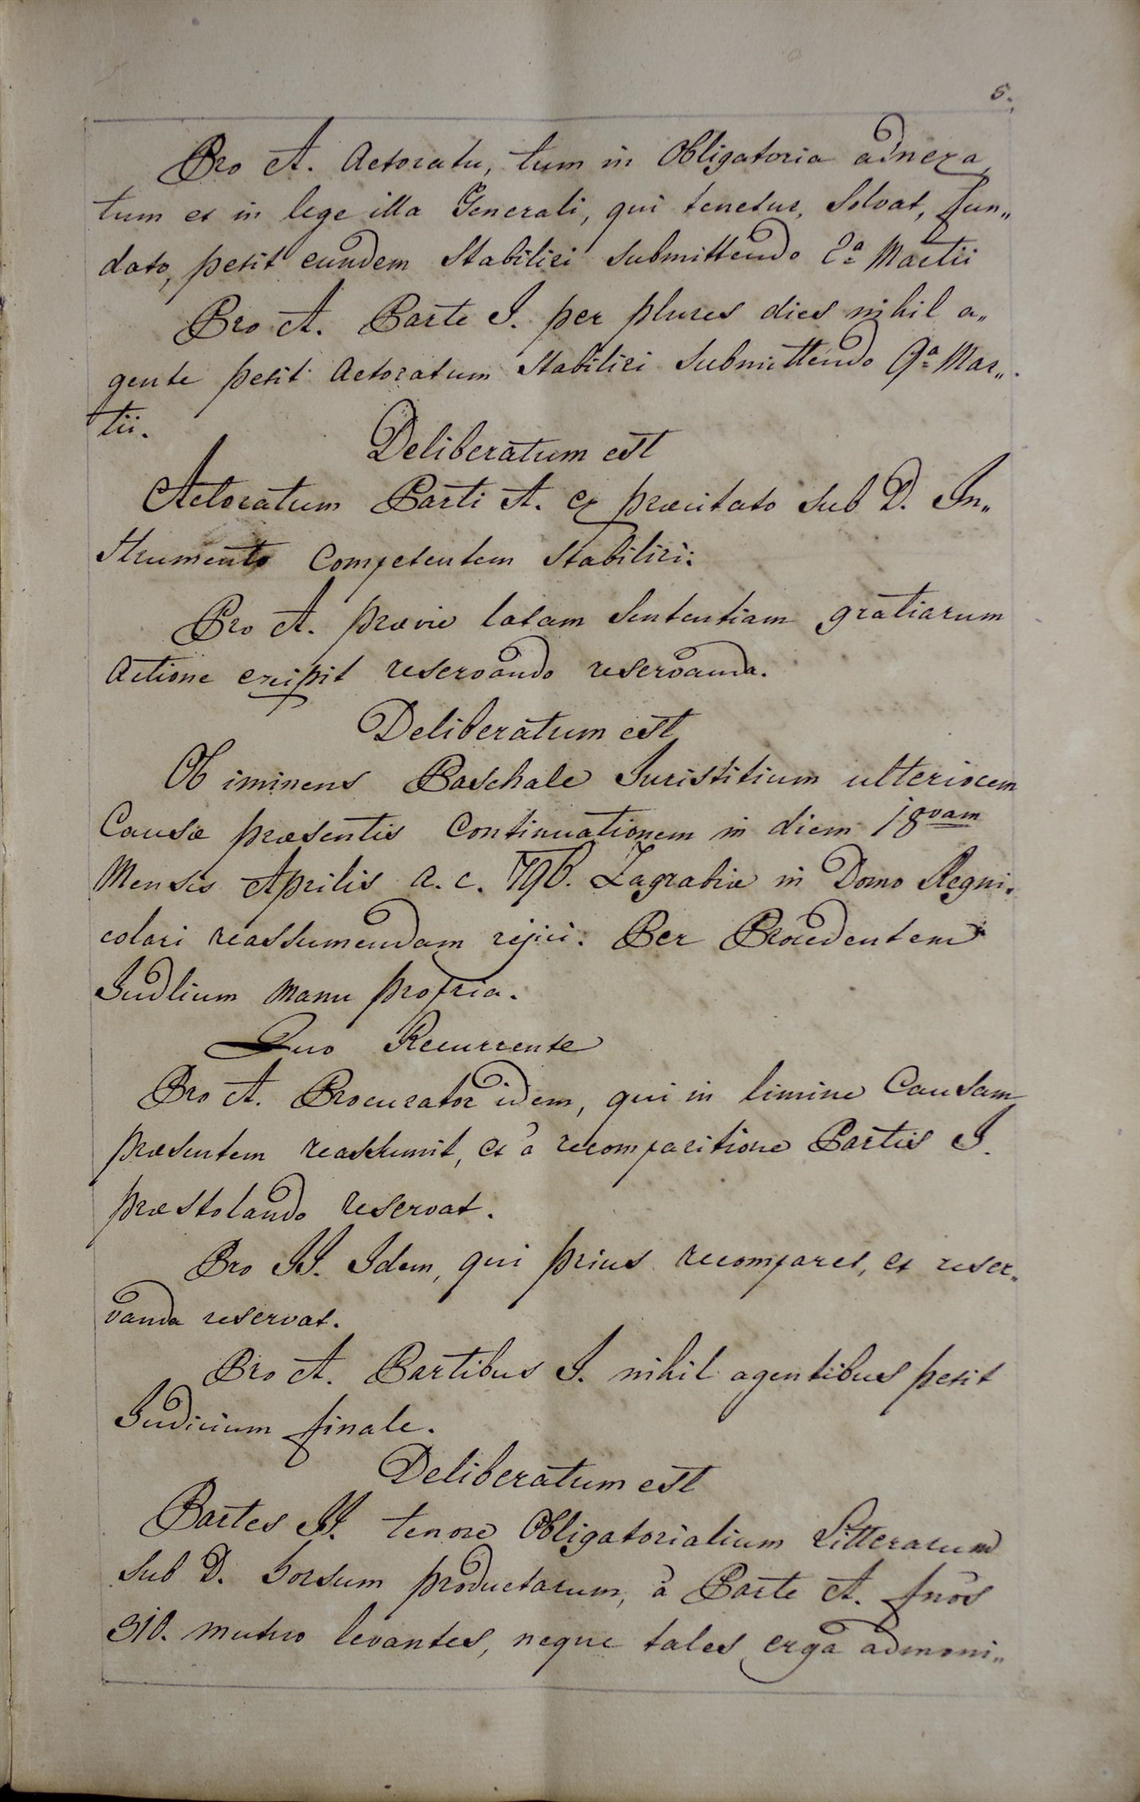 5.
Pro A. Actoratu, tum in Obligatoria adnexa
tum et in lege illa Generali, qui tenetur, Solvat, fun„
dato, petit eundem Stabiliri submittendo 2ª Martii
Pro A. Parte I. per plures dies nihil a„
gente petit Actoratum Stabiliri submittendo 9ª Mar„
tii.
Deliberatum est
Actoratum Parti A. ex præcitato sub D. In„
strumento Competentem Stabiliri.
Pro A. prævie latam Sententiam gratiarum
Actione excipit reservando reservanda.
Deliberatum est
Ob iminens Paschale Juristitium ulteriorem
Causæ præsentis Continuationem in diem 18vam
Mensis Aprilis a. c. 796. Zagrabiæ in Domo Regni„
colari reassumendam rejici. Per Procedentem
Judlium manu propria.
Quo Recurrente
Pro A. Procurator idem, qui in limine Causam
præsentem reassumit, et à recomparitione Partis I.
præstolando reservat.
Pro II. Idem, qui prius recomparet, et reser„
vanda reservat.
Pro A. Partibus I. nihil agentibus petit
Judicium finale.
Deliberatum est
Partes II. tenore Obligatorialium Litterarum
sub D. horsum productarum, à Parte A. fnos
310. mutuo levantes, neque tales erga admoni„